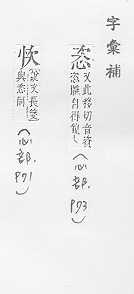 字彙補
恣
又此移切音雌
恣睢自得貌
(心部.
P73)
㤅
說文長箋
與悉同
(心部.
P71)